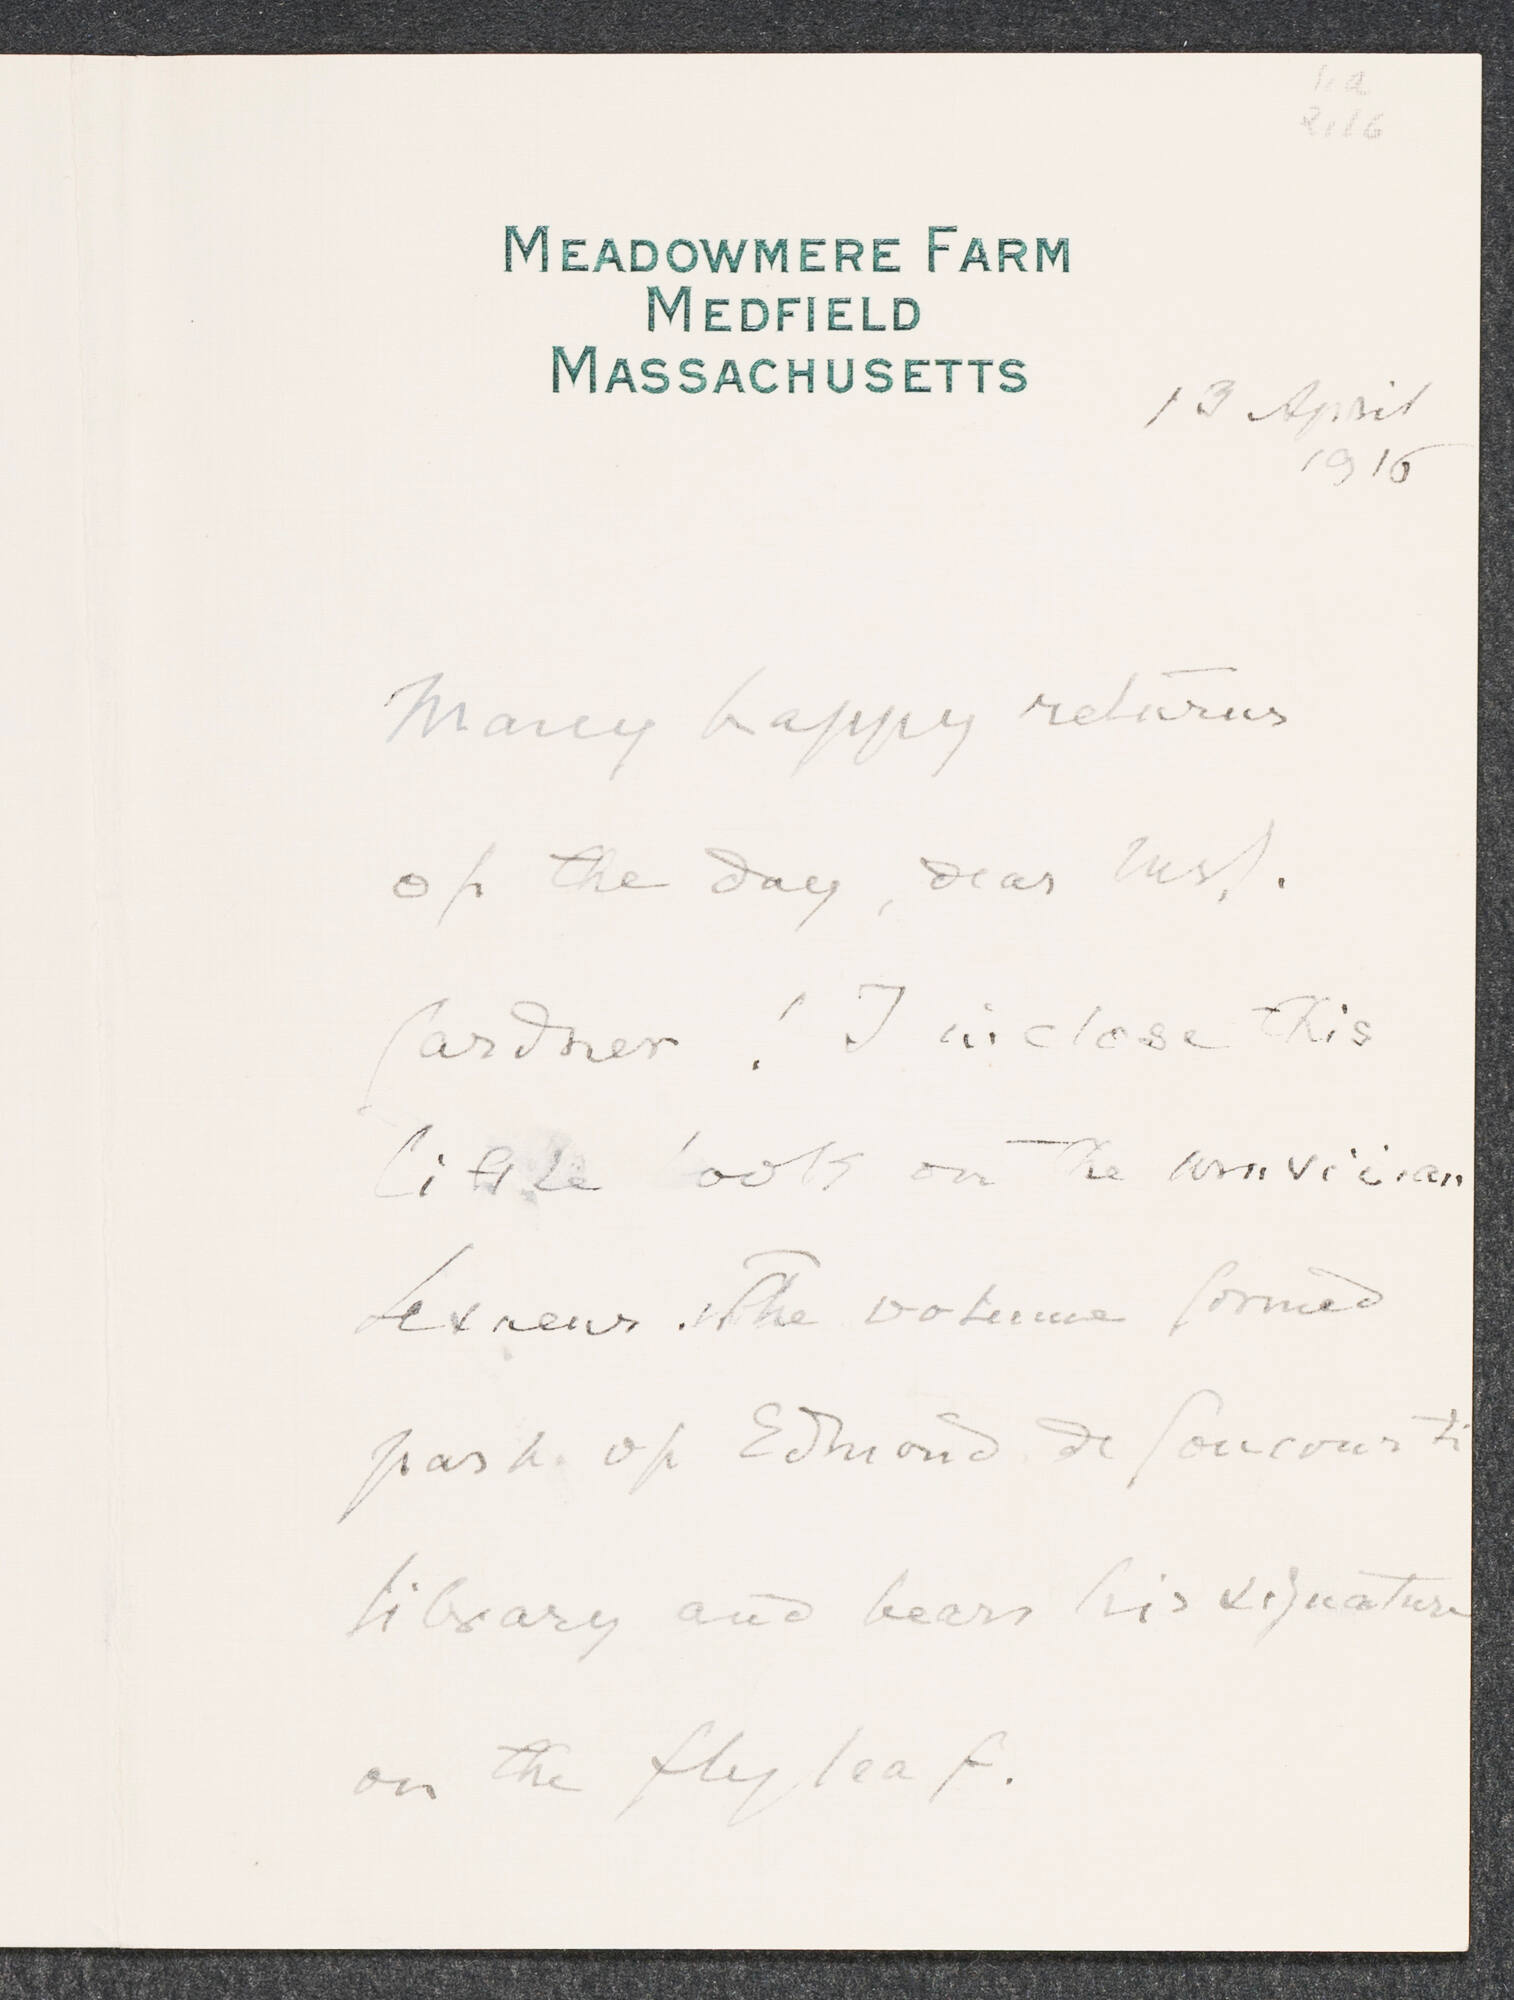 MEADOWMERE FARM
MEDFIELD
MASSACHUSETTS
13 April
1916
Many happy returns
of the day, dear Mrs.
Gardner! I inclose this
little book on the
The volume formed
part of Edmond de Goncourt's
library and bears his signature
on the fly leaf.